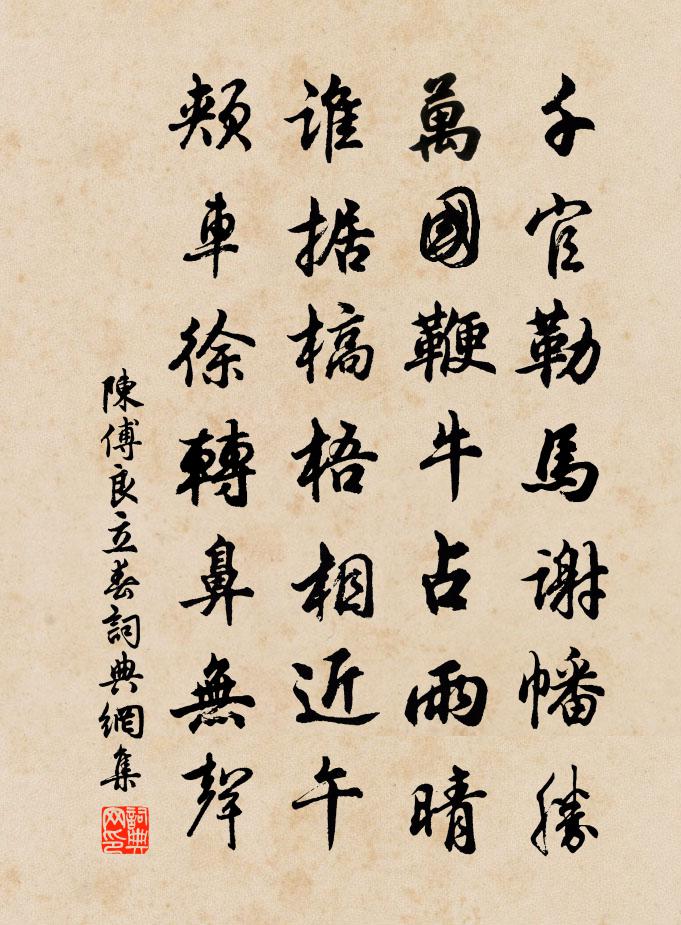 千官勒馬謝幡勝
萬國鞭牛占雨晴
誰据槁梧相近午
頰車徐轉鼻無聲
陳傅良立春詞典網集
詞典網印